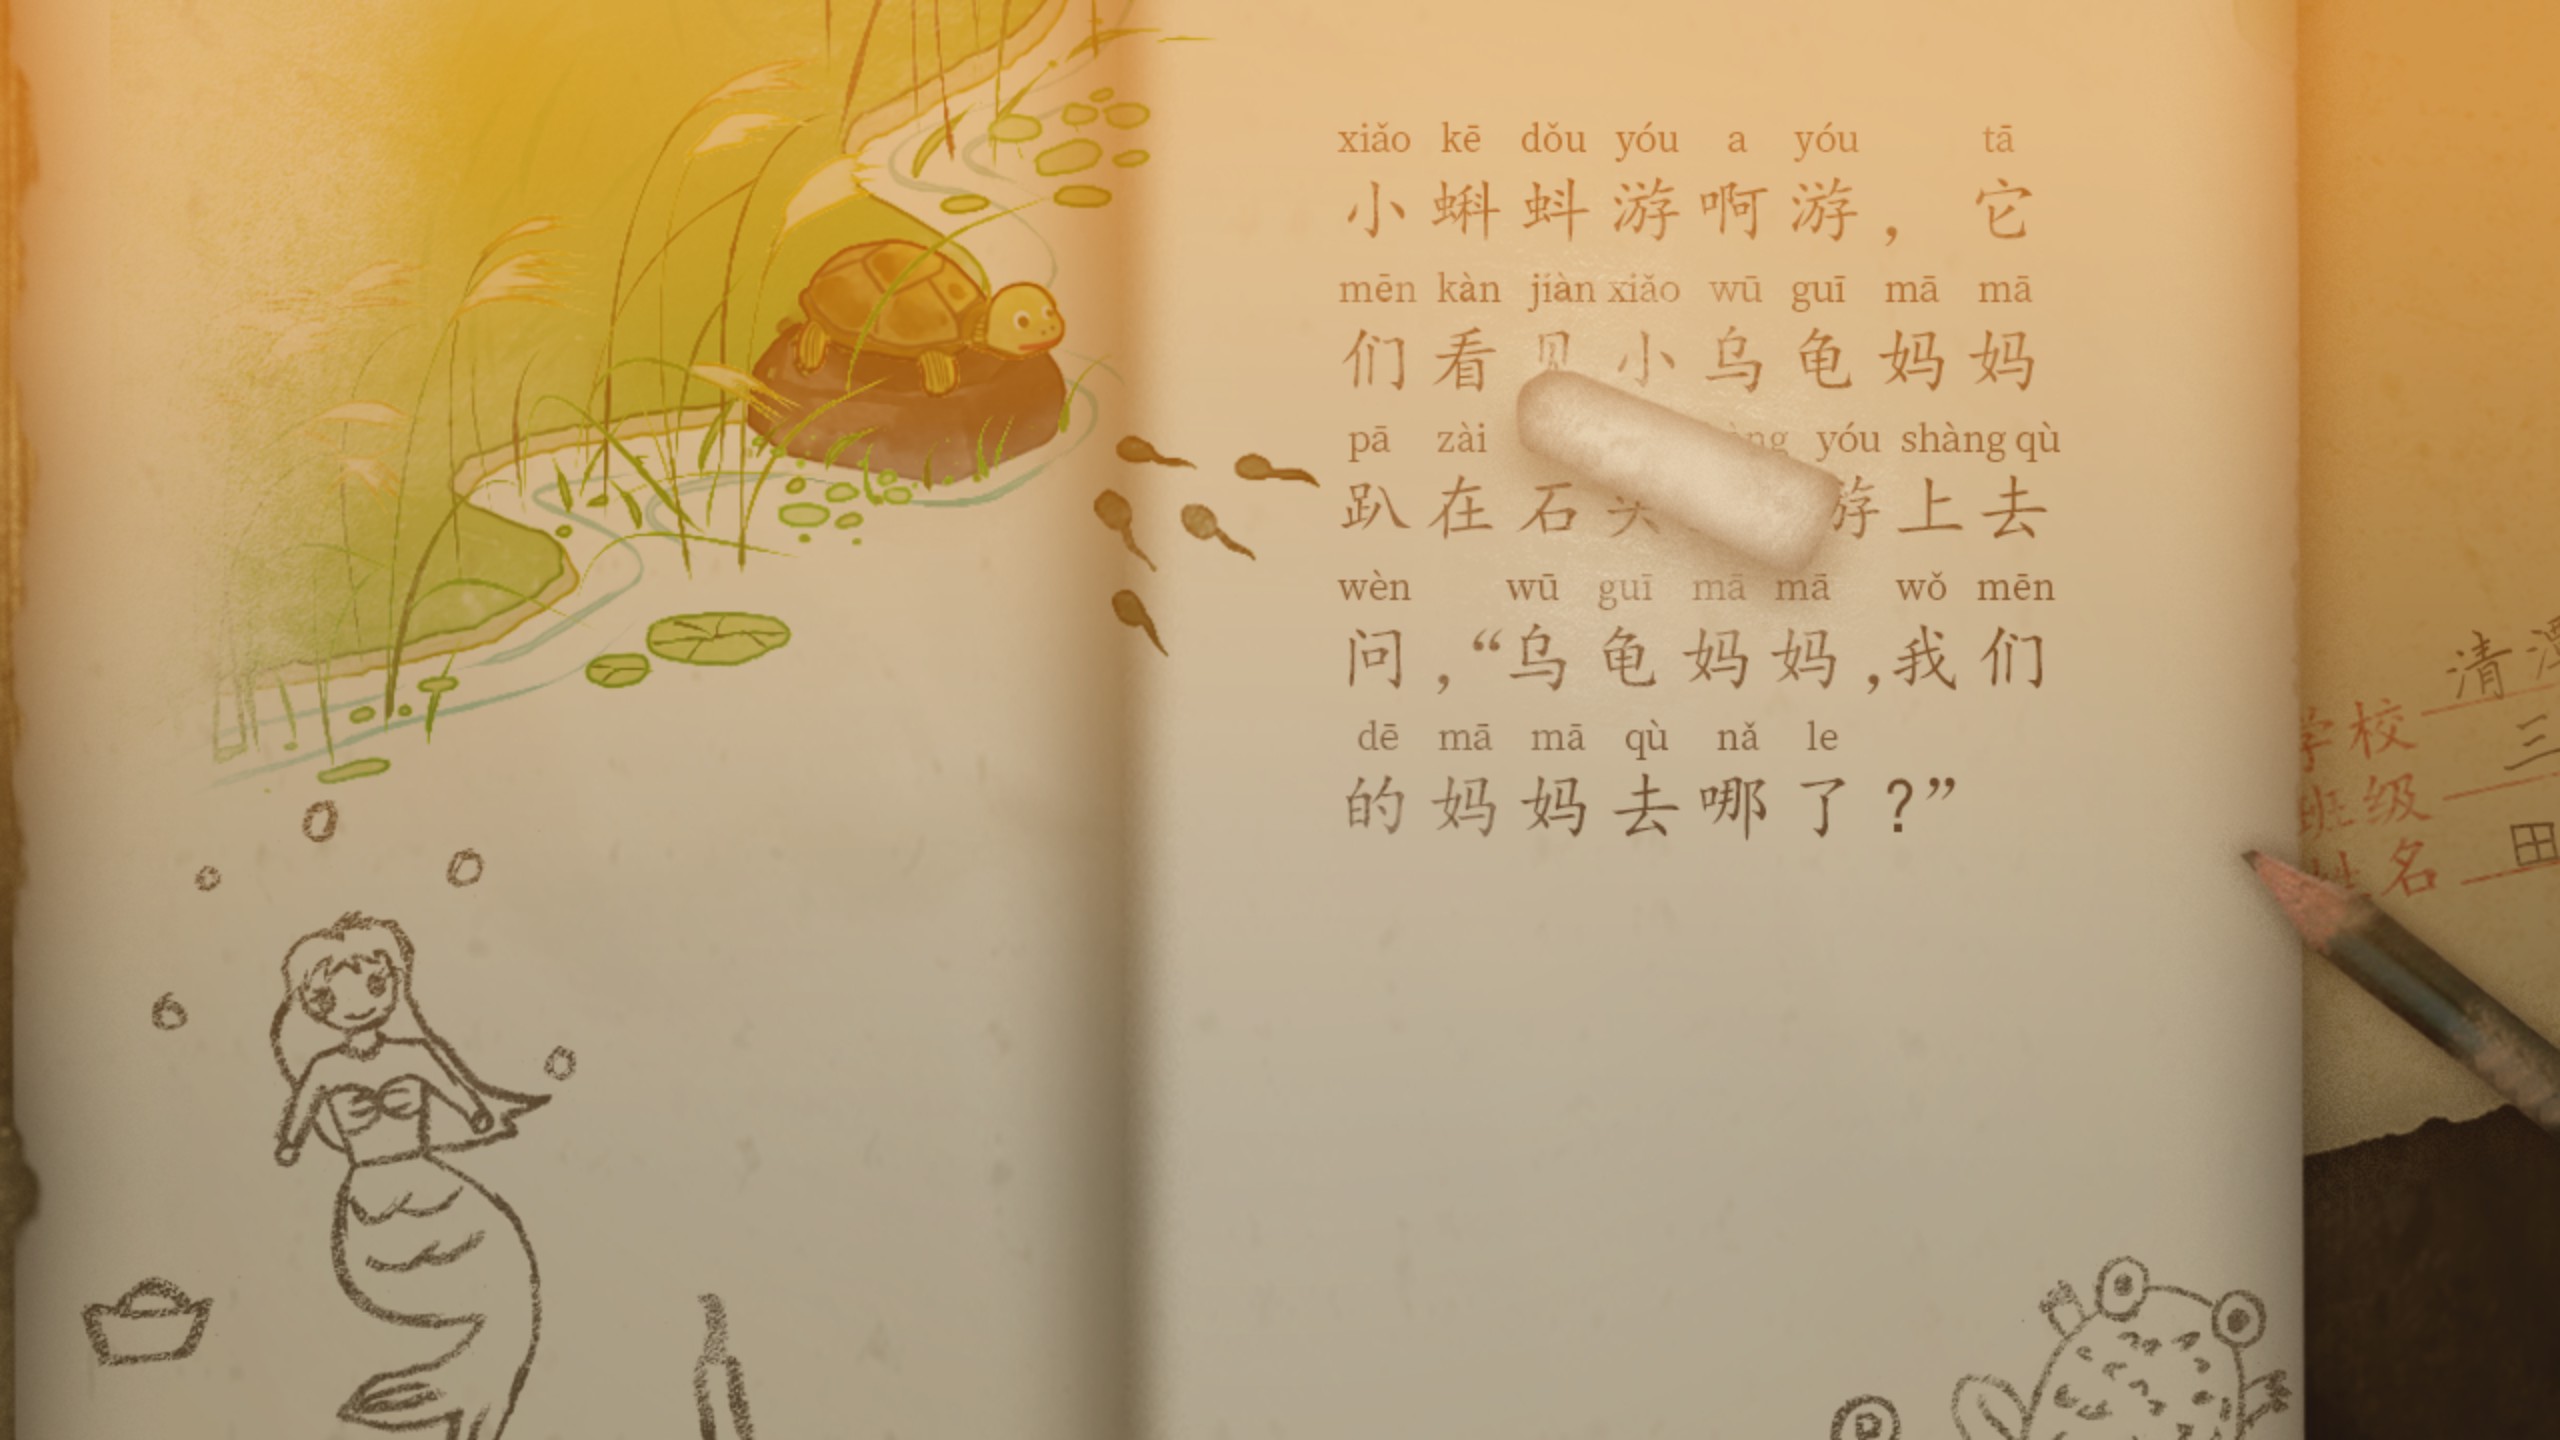 xiǎo kē dǒu yóu a yóu tā
小蝌蚪游啊游，它
mēn kàn jiàn xiǎo wū guī mā mā
们看见小乌龟妈妈
pā zài yóu shàng qù
趴在石头游上去
wèn wū guī mā mā wǒ mēn
问，“乌龟妈妈，我们
dē mā mā qù nǎ le
的妈妈去哪了？”
清潭
学校
三
班级
田
姓名